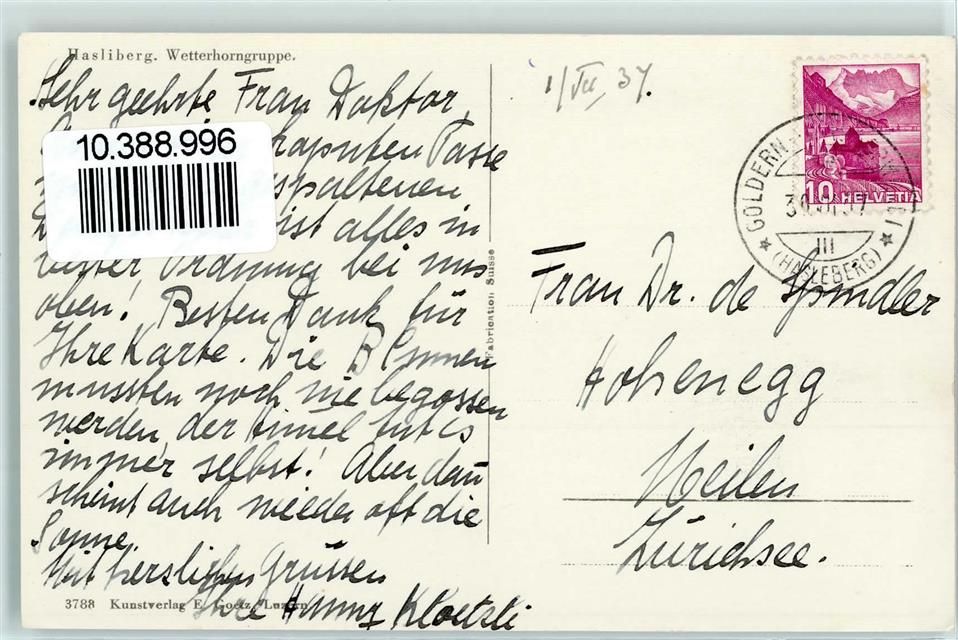 Hasliberg. Wetterhorngruppe.
Sehr geehrte Frau Doktor,
10.388.996
Tasse
spaltenen
ist alles in
bester Ordnung bei uns
oben! Besten Dank für
Ihre Karte. Die Blumen
mussten noch nie begossen
werden, der Himel tut es
immer selbst! Aber dan
scheint auch wieder oft die
Sonne.
Mit herzlichen Grüssen
Ihre Hanny Kloetzli
3788 Kunstverlag E. Goetz, Luzern
Fabrication Suisse
1/VII, 37.
10 HELVETIA
GOLDERN
III
(HASLEBERG)
Frau Dr. de Spindler
Hohenegg
Meilen
Zürichsee.